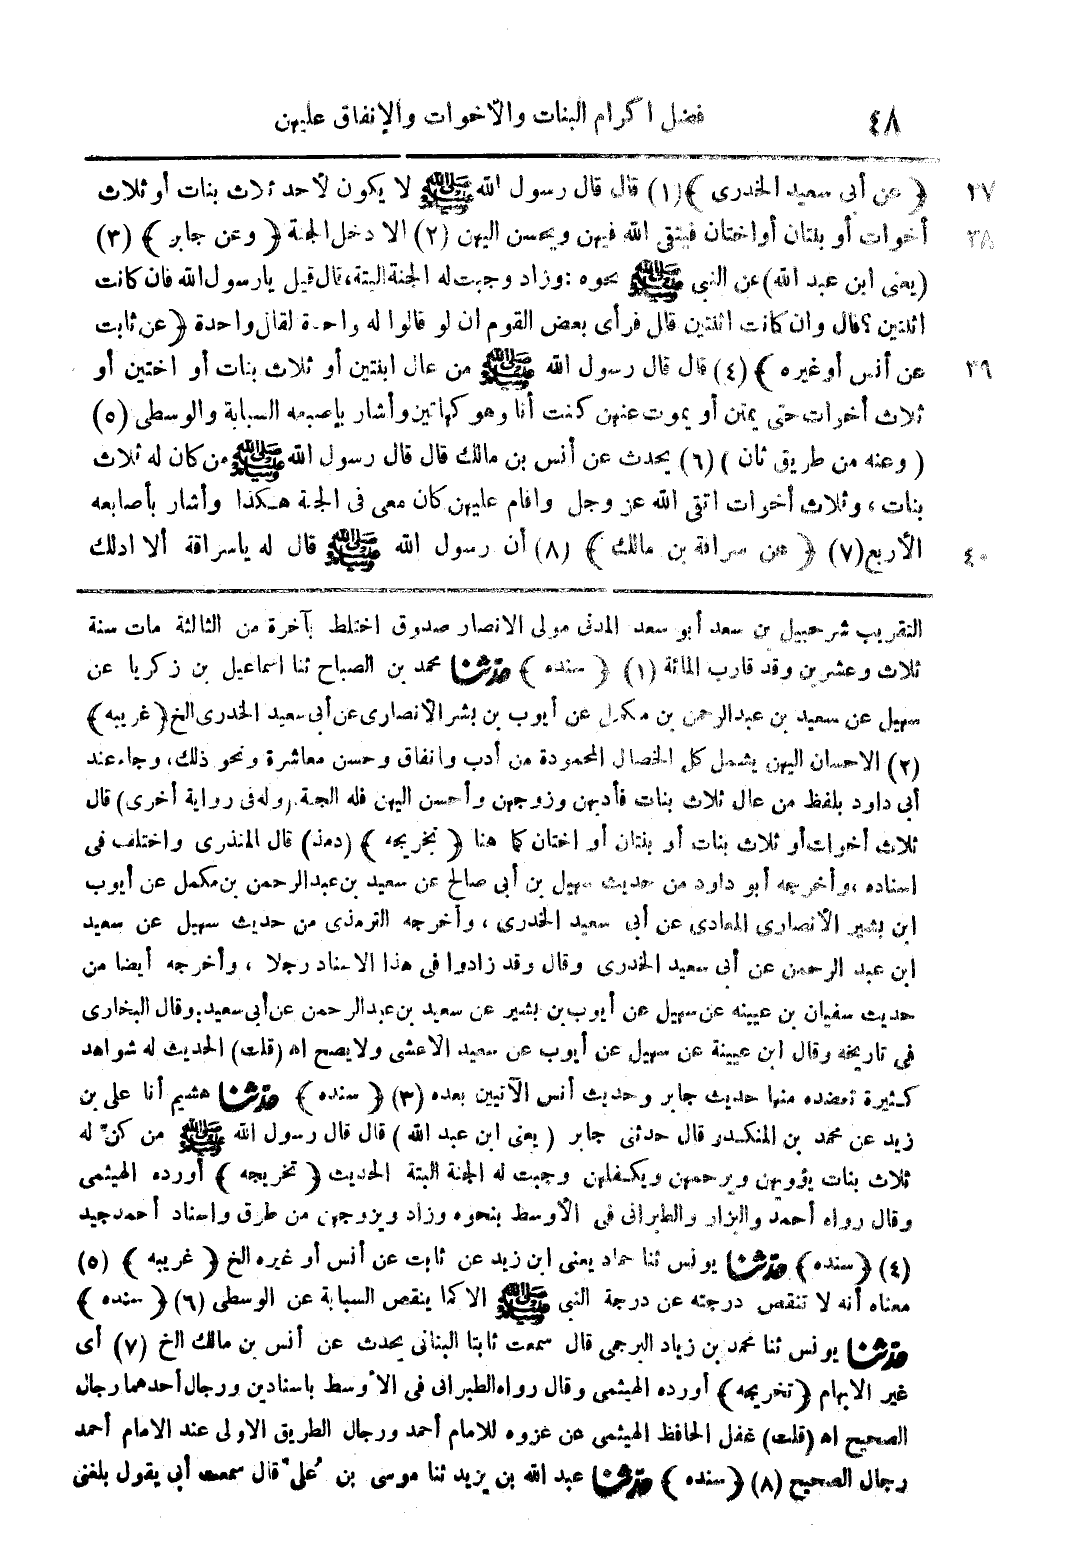 ٤٨ فضل اكرام البنات والأخوات والإنفاق عليهن
٣٧ ﴿ عن أبى سعيد الخدرى ﴾(١) قال قال رسول الله ﷺ لا يكون لأحد ثلاث بنات أو ثلاث
٣٨ أخوات أو بنتان أواختان فيتقى الله فيهن ويحسن اليهن (٢) الا دخل الجنة ﴿ وعن جابر ﴾ (٣)
(يعنى ابن عبد الله) عن النبى ﷺ بحوه : وزاد وجبت له الجنة البتة، قال قيل يارسول الله فان كانت
اثنتين ؟ قال وان كانت اثنتين قال فرأى بعض القوم ان لو قالوا له واحدة لقال واحدة ﴿ عن ثابت
٣٩ عن أنس أو غيره ﴾ (٤) قال قال رسول الله ﷺ من عال ابنتين أو ثلاث بنات أو اختين أو
ثلاث أخوات حتى يمتن أو يموت عنهن كنت أنا وهو كهاتين وأشار بإصبعه السبابة والوسطى (٥)
( وعنه من طريق ثان ) (٦) يحدث عن أنس بن مالك قال قال رسول الله ﷺ من كان له ثلاث
بنات ، وثلاث أخوات اتقى الله عز وجل واقام عليهن كان معى فى الجنة هكذا وأشار بأصابعه
٤٠ الأربع(٧) ﴿ عن سراقة بن مالك ﴾ (٨) أن رسول الله ﷺ قال له ياسراقة ألا ادلك
التقريب شرحبيل بن سعد أبو سعد المدنى مولى الانصار صدوق اختلط بآخرة من الثالثة مات سنة
ثلاث وعشرين وقد قارب المائة (١) ﴿ سنده ﴾ حدثنا محمد بن الصباح ثنا اسماعيل بن زكريا عن
سهيل عن سعيد بن عبدالرحمن بن مكمل عن أيوب بن بشر الأنصارى عن أبى سعيد الخدرى الخ ﴿ غريبه ﴾
(٢) الاحسان اليهن يشمل كل الخصال المحمودة من أدب وانفاق وحسن معاشرة ونحو ذلك، وجاء عند
أبى داود بلفظ من عال ثلاث بنات فأدبهن وزوجهن وأحسن اليهن فله الجنة (وله فى رواية أخرى) قال
ثلاث أخوات أو ثلاث بنات أو بنتان أو اختان كما هنا ﴿ تخريجه ﴾ (دمذ) قال المنذرى واختلف فى
اسناده ، وأخرجه أبو داود من حديث سهيل بن أبى صالح عن سعيد بن عبدالرحمن بن مكمل عن أيوب
ابن بشير الأنصارى المعادى عن أبى سعيد الخدرى ، وأخرجه الترمذى من حديث سهيل عن سعيد
ابن عبد الرحمن عن أبى سعيد الخدرى وقال وقد زادوا فى هذا الاسناد رجلا ، وأخرجه أيضا من
حديث سفيان بن عيينه عن سهيل عن أيوب بن بشير عن سعيد بن عبدالرحمن عن أبى سعيد. وقال البخارى
فى تاريخه وقال ابن عيينة عن سهيل عن أيوب عن سعيد الاعشى ولايصح اه (قلت) الحديث له شواهد
كثيرة تعضده منها حديث جابر وحديث أنس الآتيين بعده (٣) ﴿ سنده ﴾ حدثنا هشيم أنا على بن
زيد عن محمد بن المنكدر قال حدثنى جابر ( يعنى ابن عبد الله ) قال قال رسول الله ﷺ من كنّ له
ثلاث بنات يؤويهن ويرحمهن ويكفلهن وجبت له الجنة البتة الحديث ﴿ تخريجه ﴾ أورده الهيثمى
وقال رواه أحمد والبزار والطبرانى فى الأوسط بنحوه وزاد ويزوجهن من طرق واسناد أحمد جيد
(٤) ﴿ سنده ﴾ حدثنا يونس ثنا حماد يعنى ابن زيد عن ثابت عن أنس أو غيره الخ ﴿ غريبه ﴾ (٥)
معناه أنه لا تنقص درجته عن درجة النبى ﷺ الا كما ينقص السبابة عن الوسطى (٦) ﴿ سنده ﴾
حدثنا يونس ثنا محمد بن زياد البرجمى قال سمعت ثابتا البنانى يحدث عن أنس بن مالك الخ (٧) أى
غير الابهام ﴿ تخريجه ﴾ أورده الهيثمى وقال رواه الطبرانى فى الأوسط باسنادين ورجال أحدهما رجال
الصحيح اه (قلت) غفل الحافظ الهيثمى عن عزوه للامام أحمد ورجال الطريق الاولى عند الامام أحمد
رجال الصحيح (٨) ﴿ سنده ﴾ حدثنا عبد الله بن يزيد ثنا موسى بن عُلىّ قال سمعت أبى يقول بلغنى